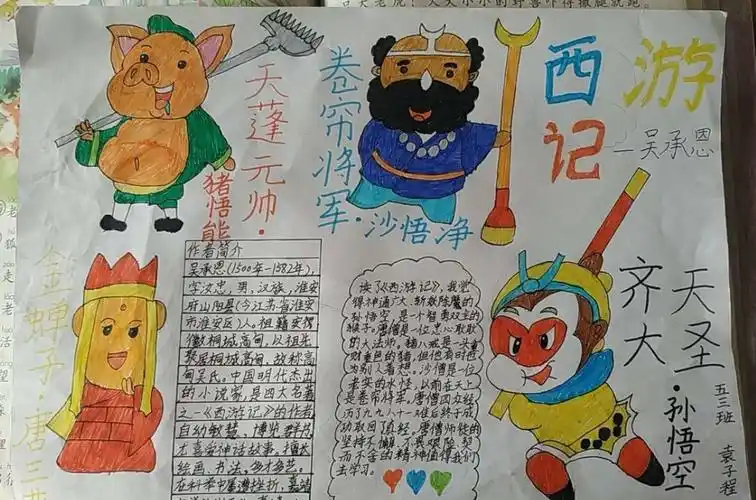 西游
记
—吴承恩
天蓬元帅·
猪悟能
卷帘将军·沙悟净
金蝉子·唐三
齐天
大圣·孙悟空
五三班
袁子程
作者简介
吴承恩(1500年-1582年),
字汝忠,男,汉族,淮安
府山阳县(今江苏省淮安
市淮安区)人。祖籍安
徽桐城高甸,以祖先
聚居桐城高甸,故称高
甸吴氏。中国明代杰出
的小说家,是四大名著
之一《西游记》的作者
自幼敏慧,博览群书,
尤喜爱神话故事。擅长
绘画、书法,多才多艺。
在科举中屡遭挫折,嘉靖
读了《西游记》,我觉
得神通广大、斩妖除魔的
孙悟空,是一个智勇双全的
猴子。唐僧是一位忠心耿耿
的大法师。猪八戒是一头重
财重色的猪,但他有时也
为别人着想。沙僧是一位
老实的水怪,以前在天上
是卷帘将军。唐僧四众经
历了九九八十一难后终于成
功取回真经。唐僧师徒的
坚持不懈、不畏艰险、契
而不舍的精神值得我们
去学习。